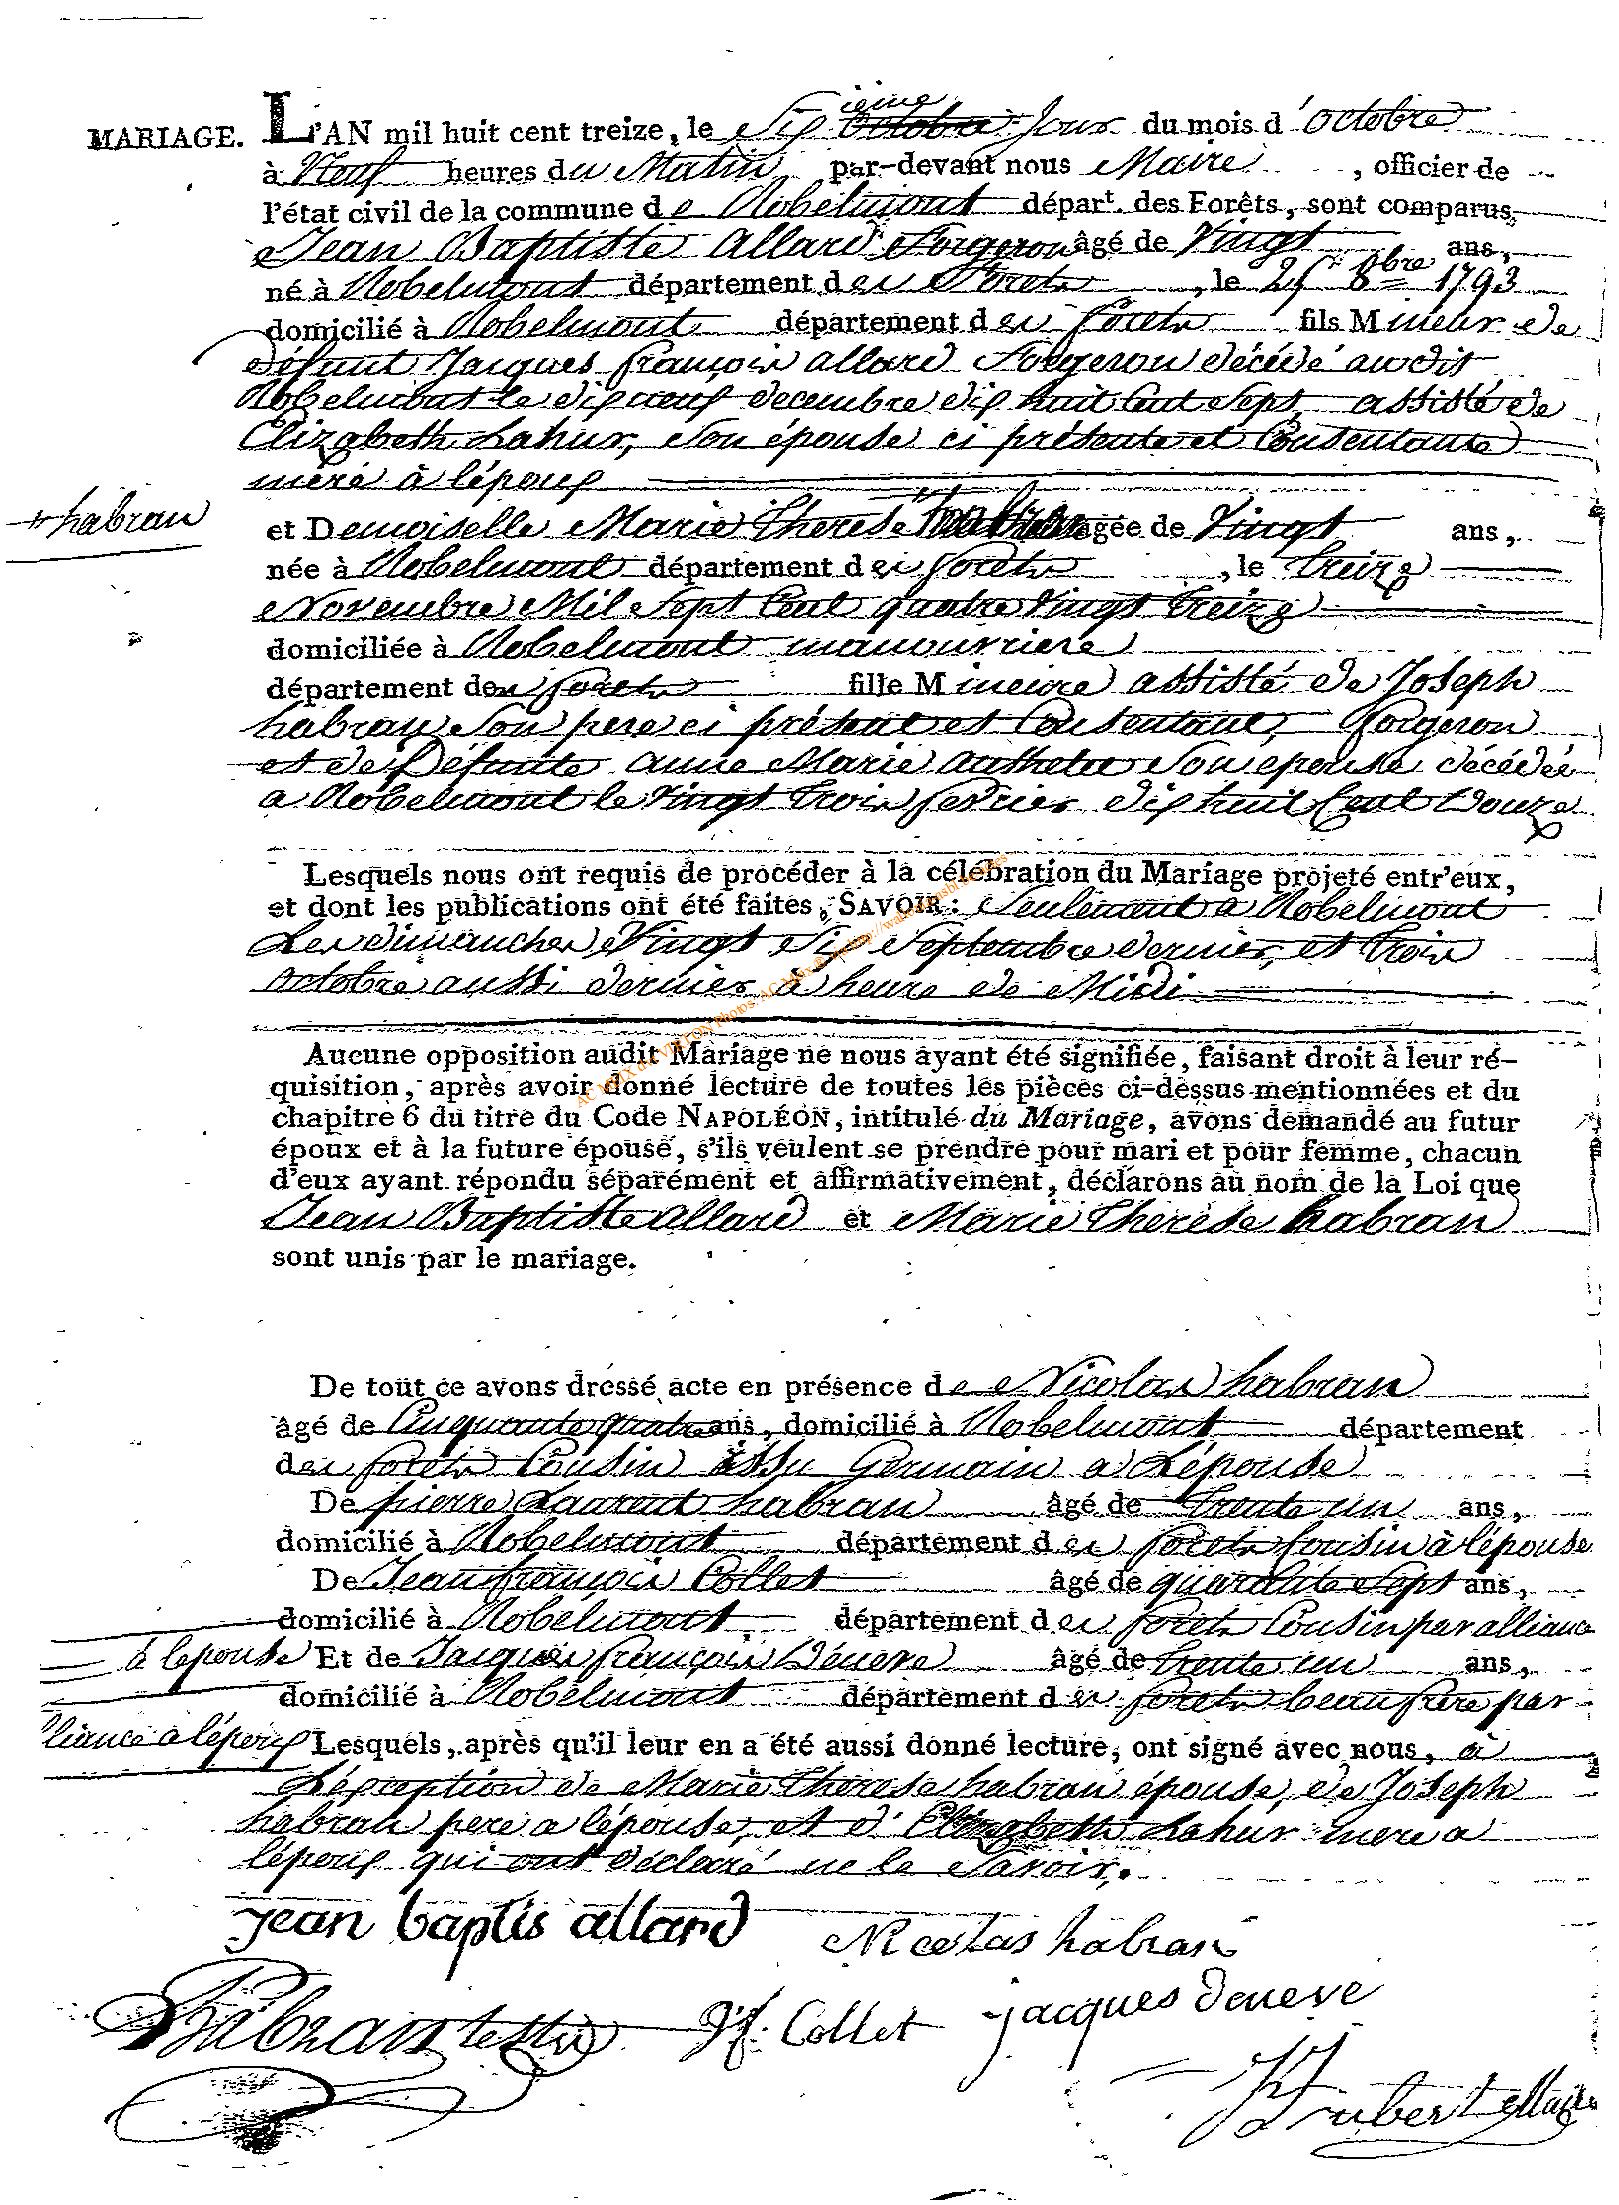 MARIAGE. L'AN mil huit cent treize, le Sixieme Jour du mois d'octobre
à Neuf heures du Matin par-devant nous Maire, officier de
l'état civil de la commune de Robelmont dépar<sup>t</sup>. des Forêts, sont comparus,
Jean Baptiste allard Forgeron âgé de Vingt ans,
né à Robelmont département des Forets, le 25 8bre 1793
domicilié à Robelmont département des forets fils Mineur de
défunt Jacques françois allard Forgeron décédé au dit
Robelmont le dix neuf decembre dix huit Cent Sept, assisté de
Elizabeth Lahur, Son épouse ci présente et Consentante
mere à l'époux
+ habran
et Demoiselle Marie Therese agée de Vingt ans,
née à Robelmont département des forets, le treize
Novembre Mil Sept Cent quatre Vingt treize
domiciliée à Robelmont manouvriere
département des forets fille Mineure assisté de Joseph
habran Son pere ci présent et Consentant, Forgeron
et de Défunte anne Marie Son epouse décédée
a Robelmont le Vingt trois fevrier dix huit Cent Douze
Lesquels nous ont requis de procéder à la célébration du Mariage projeté entr'eux,
et dont les publications ont été faites, SAVOIR: Seulement a Robelmont
Les dimanches Vingt Six Septembre dernier, et trois
octobre aussi dernier à heure de Midi
Aucune opposition audit Mariage ne nous ayant été signifiée, faisant droit à leur ré-
quisition, après avoir donné lecture de toutes les pièces ci-dessus mentionnées et du
chapitre 6 du titre du Code NAPOLÉON, intitulé du Mariage, avons demandé au futur
époux et à la future épouse, s'ils veulent se prendre pour mari et pour femme, chacun
d'eux ayant répondu séparément et affirmativement, déclarons au nom de la Loi que
Jean Baptiste allard et Marie Therese habran
sont unis par le mariage.
De tout ce avons dressé acte en présence de Nicolas habran
âgé de Cinquante quatre ans, domicilié à Robelmont département
des forets Cousin issu Germain a L'épouse
De pierre Laurent habran âgé de trente un ans,
domicilié à Robelmont département des forets Cousin à l'épouse
De Jean françois Collet âgé de quarante Sept ans,
domicilié à Robelmont département des forets Cousin par alliance
à l'epouse Et de Jacques françois Déneve âgé de trente un ans,
domicilié à Robelmont département des forets beau frere par
liance a l'époux Lesquels, après qu'il leur en a été aussi donné lecture, ont signé avec nous, à
L'éxception de Marie Therese habran épouse, de Joseph
habran pere a l'épouse, et d'Elizabeth Lahur mere a
l'époux qui ont déclaré ne le Savoir.
jean baptis allard Nicolas habran
habran j f. Collet jacques deneve